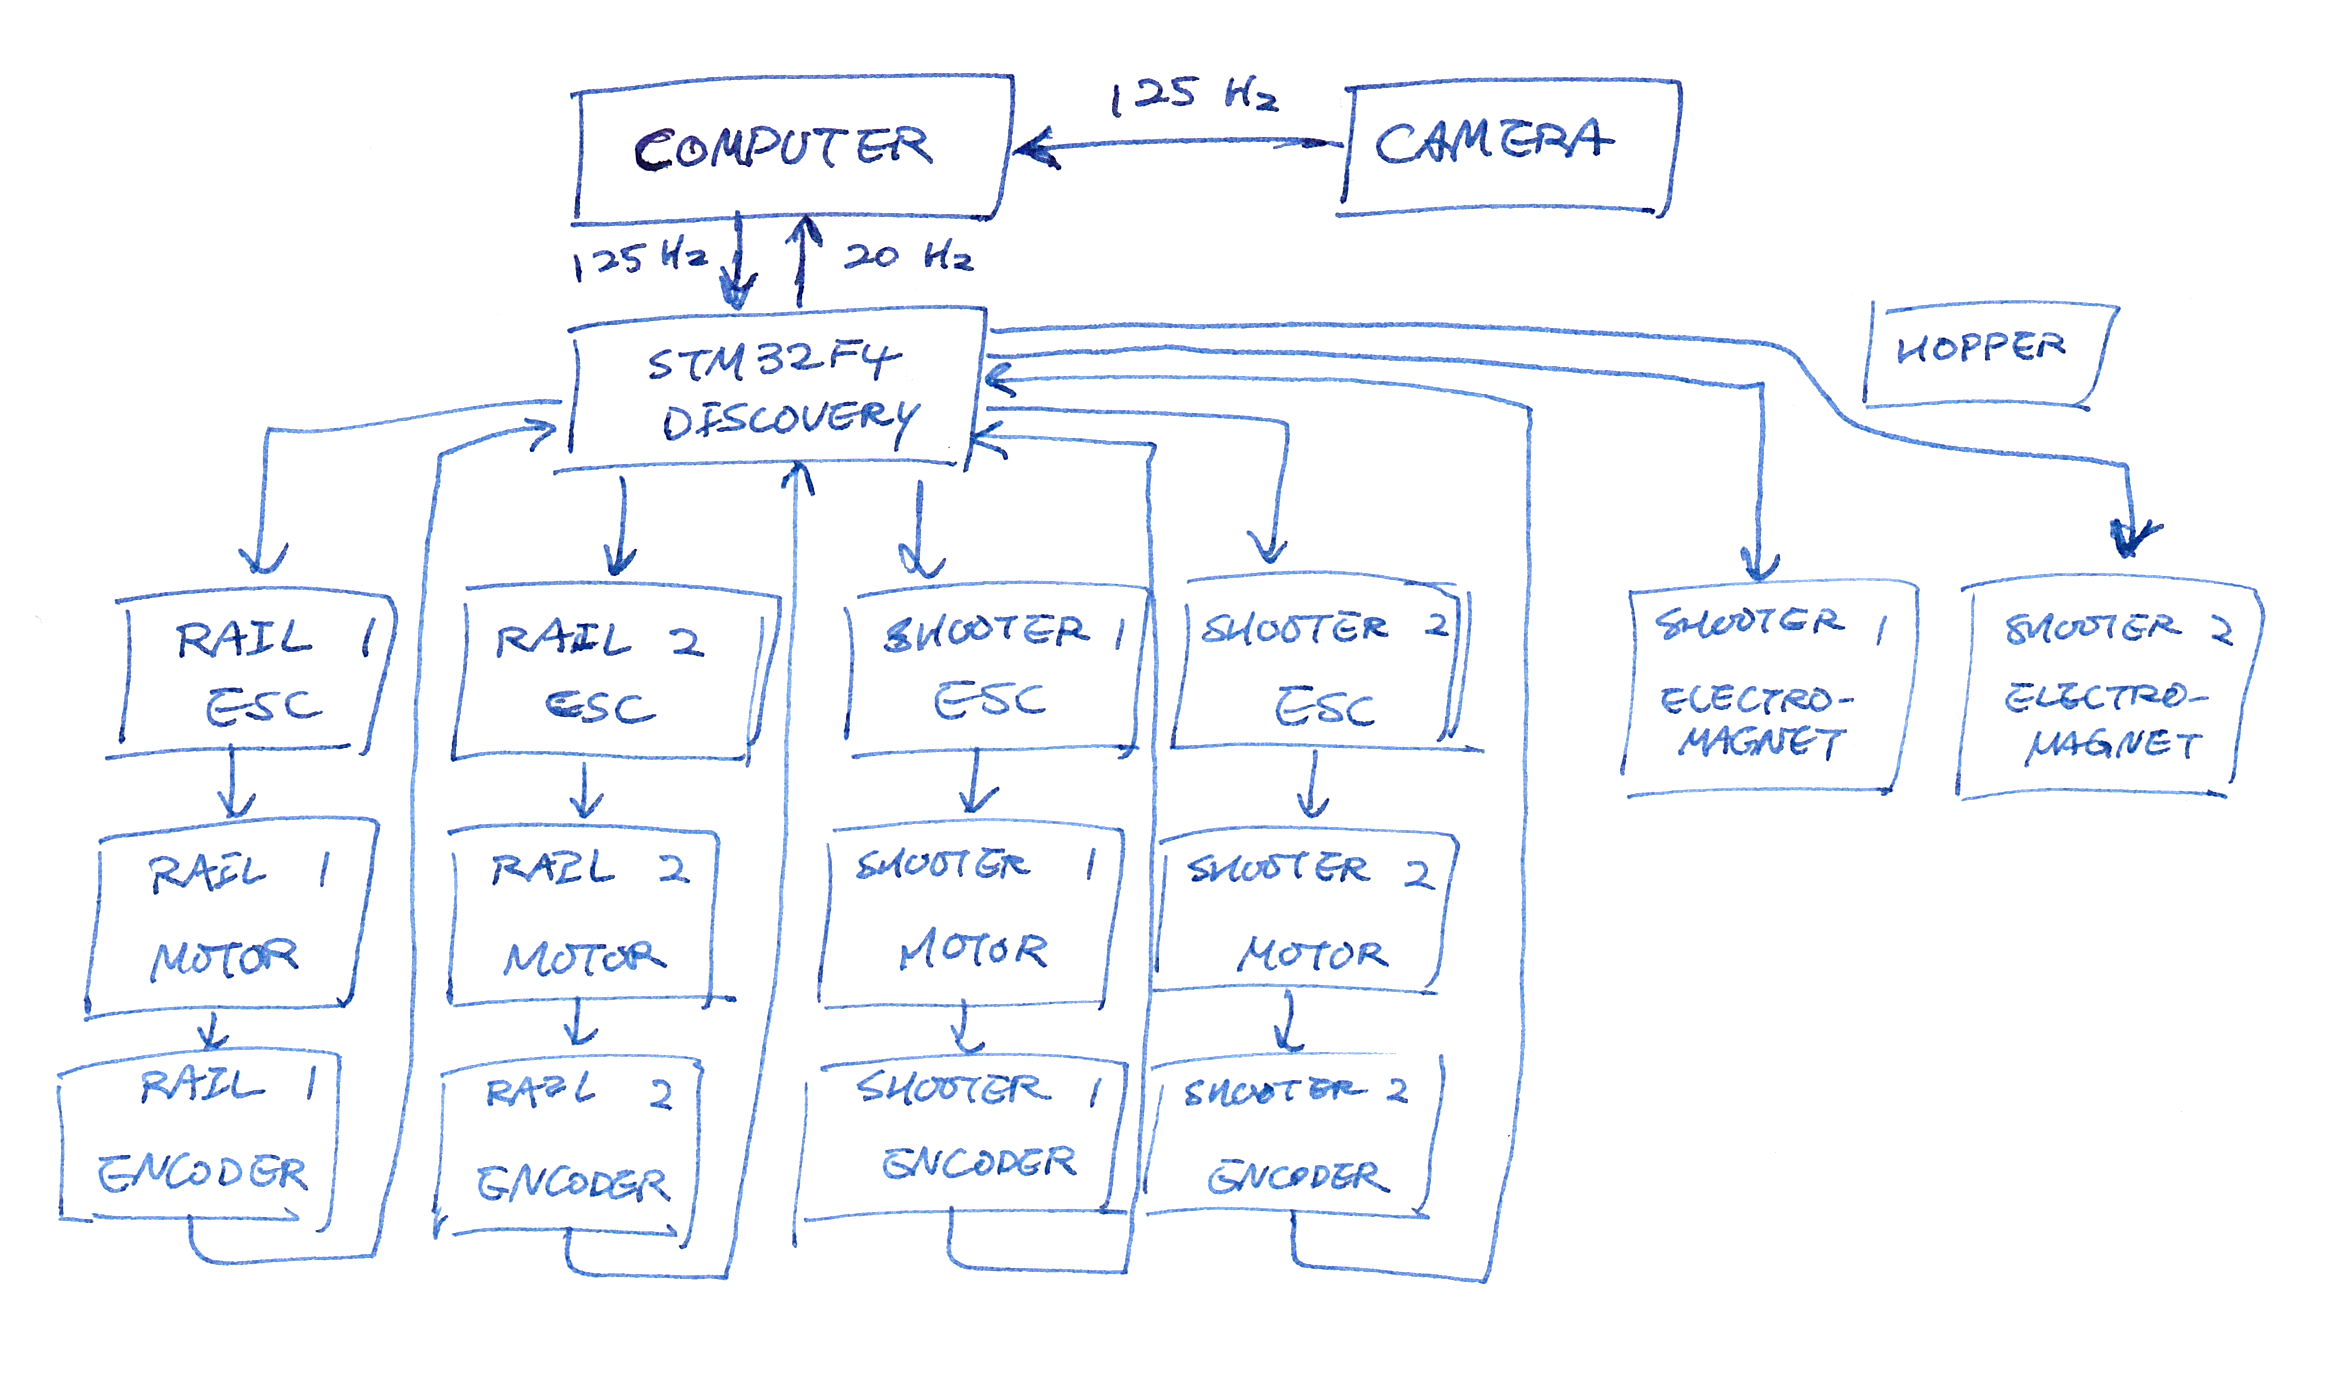 125 Hz
COMPUTER
CAMERA
125 Hz
20 Hz
STM32F4
DISCOVERY
HOPPER
RAIL 1
ESC
RAIL 2
ESC
SHOOTER 1
ESC
SHOOTER 2
ESC
SHOOTER 1
ELECTRO-
MAGNET
SHOOTER 2
ELECTRO-
MAGNET
RAIL 1
MOTOR
RAIL 2
MOTOR
SHOOTER 1
MOTOR
SHOOTER 2
MOTOR
RAIL 1
ENCODER
RAIL 2
ENCODER
SHOOTER 1
ENCODER
SHOOTER 2
ENCODER